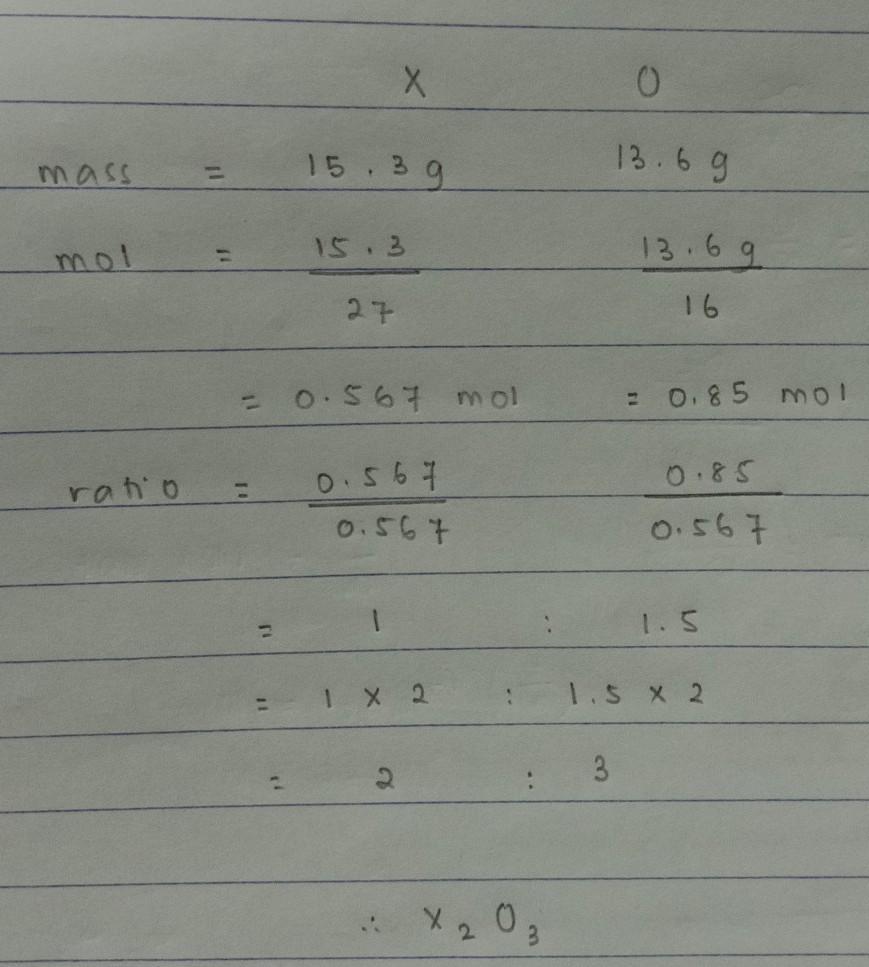 X O
mass = 15.3 g 13.6 g
mol = 15.3 / 27 13.6 g / 16
= 0.567 mol = 0.85 mol
ratio = 0.567 / 0.567 0.85 / 0.567
= 1 : 1.5
= 1 x 2 : 1.5 x 2
= 2 : 3
∴ X₂O₃